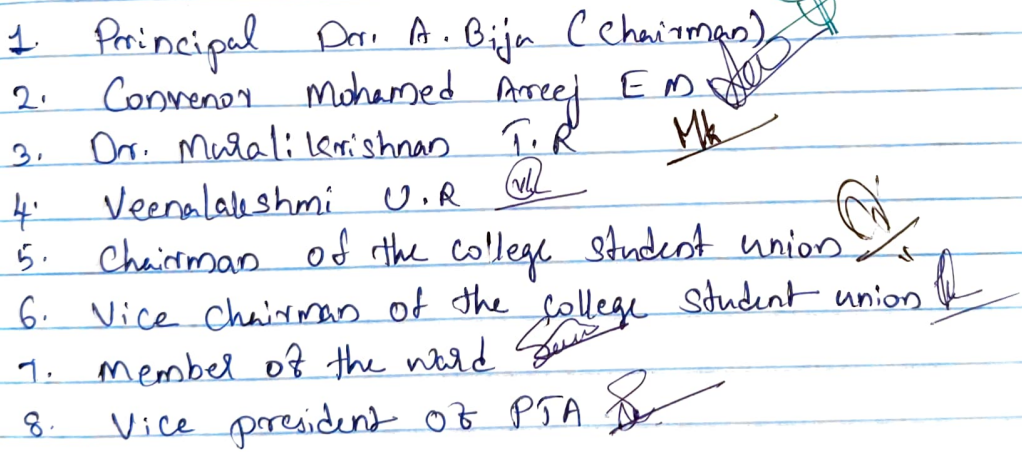 1. Principal Dr. A. Biju (Chairman)
2. Convenor Mohamed Areej E M
3. Dr. Muralikrishnan T.R Mk
4. Veenalakshmi U.R
5. Chairman of the college student union
6. Vice Chairman of the college student union
7. Member of the ward
8. Vice president of PTA